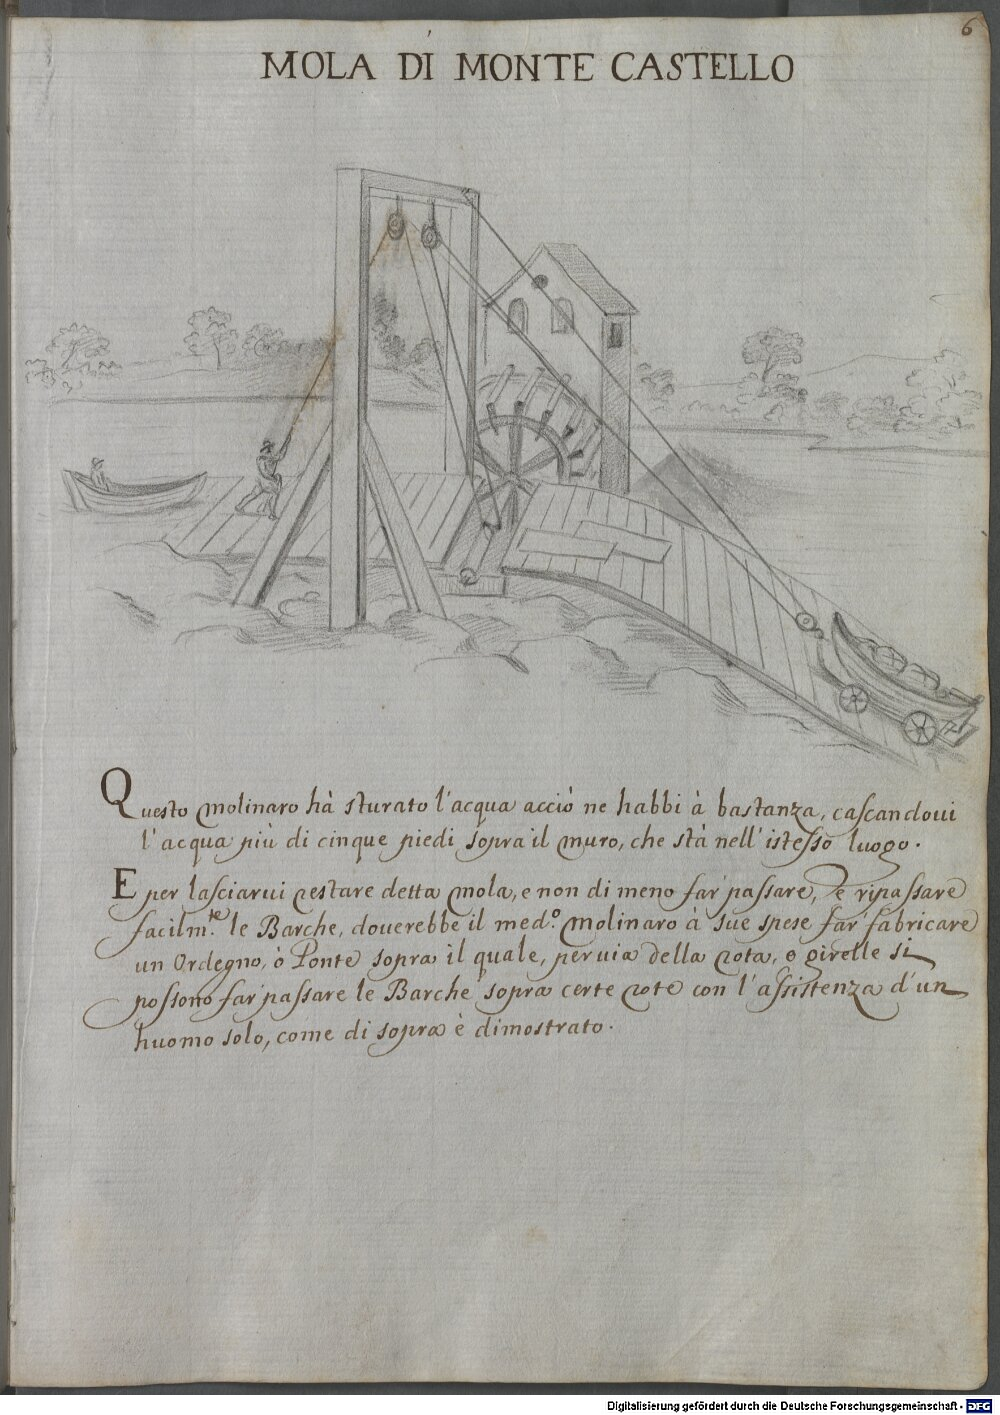 6
MOLA DÍ MONTE CASTELLO
Questo molinaro hà sturato l'acqua acciò ne habbi à bastanza, cascandoui
l'acqua più di cinque piedi sopra il muro, che stà nell'istesso luogo.
E per lasciarui restare detta mola, e non di meno far passare, e ripassare
facilm.te le Barche, douerebbe il med.o molinaro à sue spese far fabricare
un Ordegno, ò Ponte sopra il quale, per uia della rota, e girelle si
possono far passare le Barche sopra certe rote con l'assistenza d'un
huomo solo, come di sopra è dimostrato.
Digitalisierung gefördert durch die Deutsche Forschungsgemeinschaft - DFG